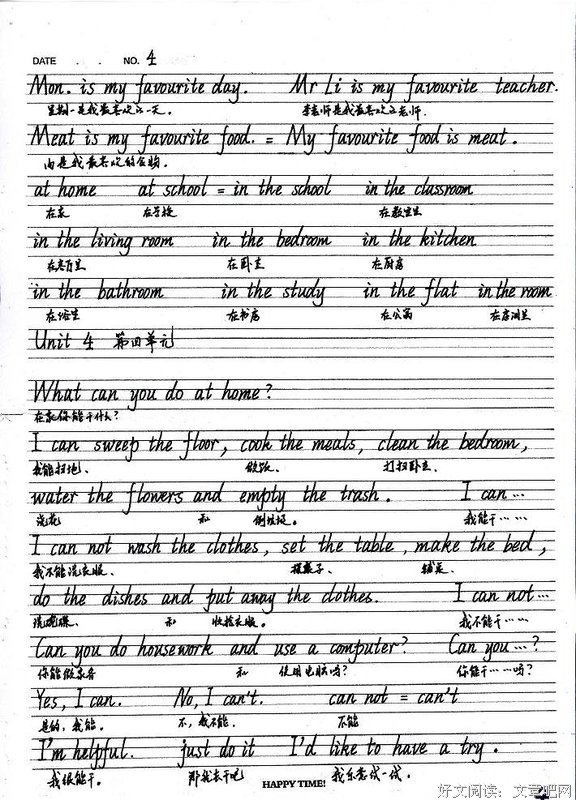 DATE . . NO. 4
Mon. is my favourite day. Mr Li is my favourite teacher.
星期一是我最喜欢的一天。 李老师是我最喜欢的老师.
Meat is my favourite food. = My favourite food is meat.
肉是我最喜欢的食物。
at home at school = in the school in the classroom
在家 在学校 在教室里
in the living room in the bedroom in the kitchen
在客厅里 在卧室 在厨房
in the bathroom in the study in the flat in the room
在浴室 在书房 在公寓 在房间里
Unit 4 第四单元
What can you do at home?
在家你能干什么?
I can sweep the floor, cook the meals, clean the bedroom,
我能扫地、 做饭、 打扫卧室、
water the flowers and empty the trash. I can…
浇花 和 倒垃圾。 我能干……
I can not wash the clothes, set the table, make the bed,
我不能洗衣服、 摆桌子、 铺床、
do the dishes and put away the clothes. I can not…
洗碗碟、 和 收拾衣服。 我不能干……
Can you do housework and use a computer? Can you…?
你能做家务 和 使用电脑吗? 你能干……吗?
Yes, I can. No, I can't. can not = can't
是的,我能。 不,我不能. 不能
I'm helpful. just do it I'd like to have a try.
我很能干。 那就去干吧 我乐意试一试.
HAPPY TIME!
好文阅读：文章吧网